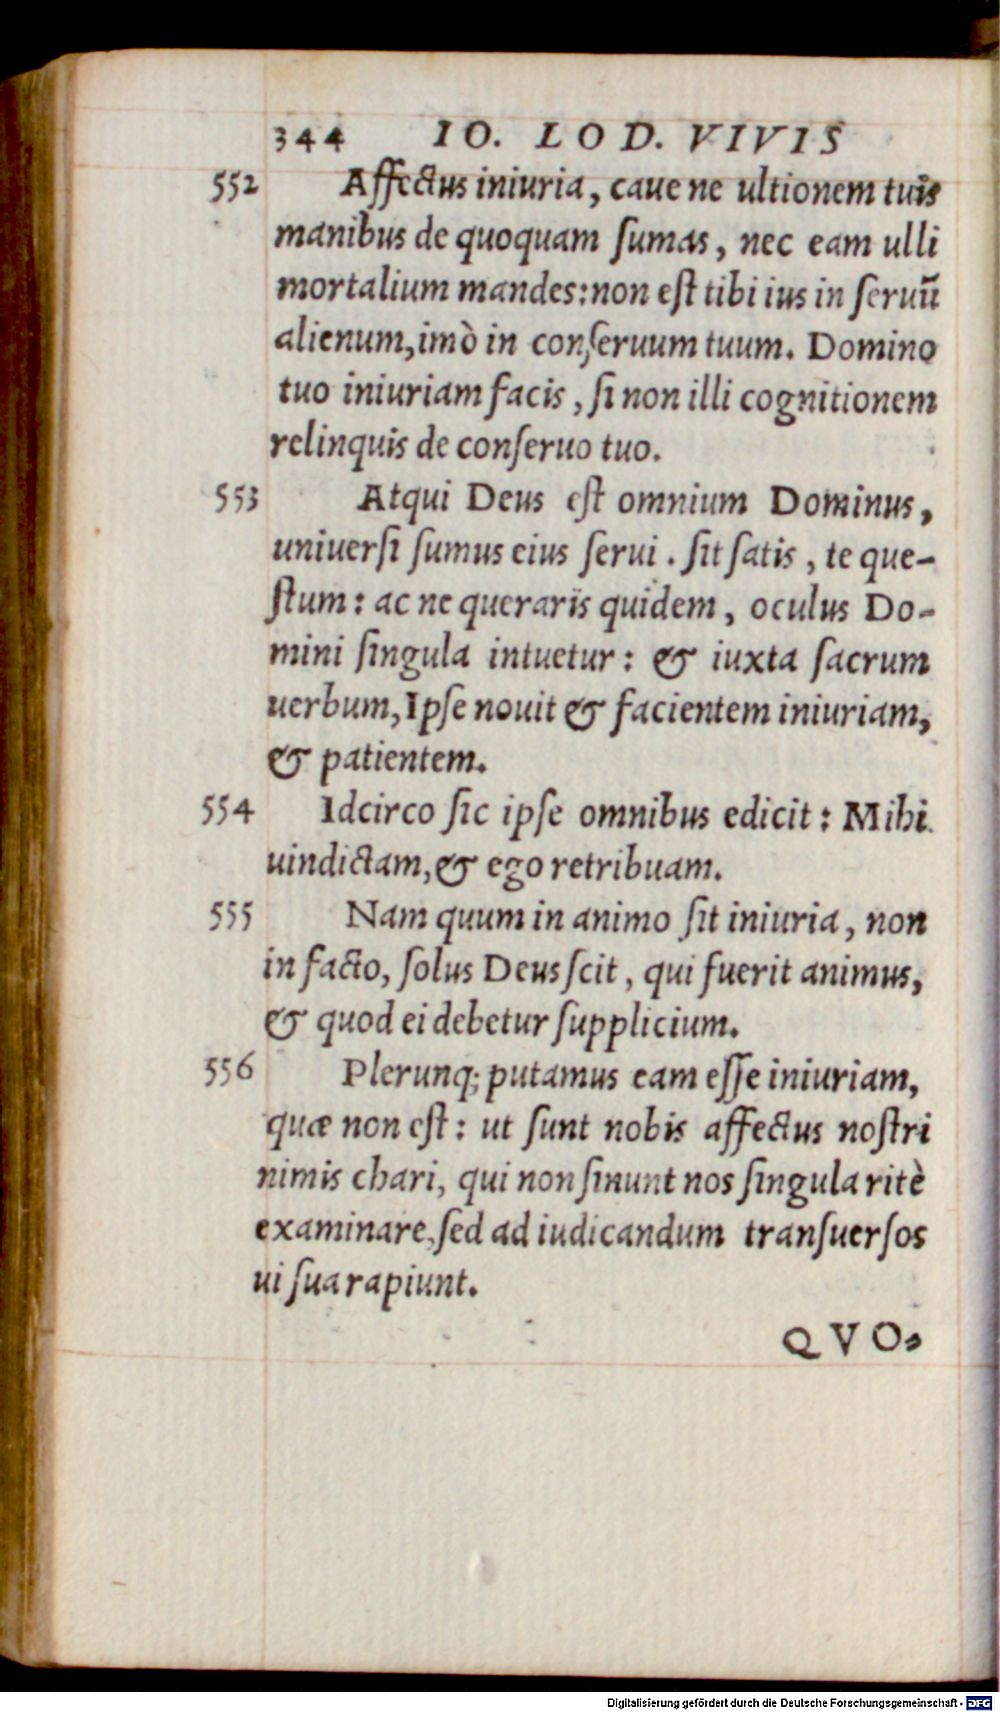 344 IO. LOD. VIVIS
552 Affectus iniuria, caue ne ultionem tuis
manibus de quoquam ſumas, nec eam ulli
mortalium mandes: non eſt tibi ius in ſeruū
alienum, imò in conſeruum tuum. Domino
tuo iniuriam facis, ſi non illi cognitionem
relinquis de conſeruo tuo.
553 Atqui Deus eſt omnium Dominus,
uniuerſi ſumus eius ſerui. ſit ſatis, te que-
ſtum: ac ne queraris quidem, oculus Do-
mini ſingula intuetur: & iuxta ſacrum
uerbum, Ipſe nouit & facientem iniuriam,
& patientem.
554 Idcirco ſic ipſe omnibus edicit: Mihi
uindictam, & ego retribuam.
555 Nam quum in animo ſit iniuria, non
in facto, ſolus Deus ſcit, qui fuerit animus,
& quod ei debetur ſupplicium.
556 Plerunq; putamus eam eſſe iniuriam,
quæ non eſt: ut ſunt nobis affectus noſtri
nimis chari, qui non ſinunt nos ſingula ritè
examinare, ſed ad iudicandum tranſuerſos
ui ſua rapiunt.
QVO-
Digitalisierung gefördert durch die Deutsche Forschungsgemeinschaft - DFG